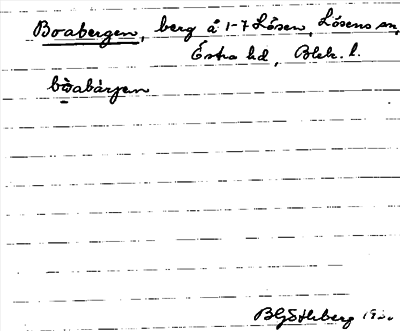 Boabergen, berg å 1-7 Lösen, Lösens sn,
Östra hd, Blek. l.
bòabárjen
B Göthberg